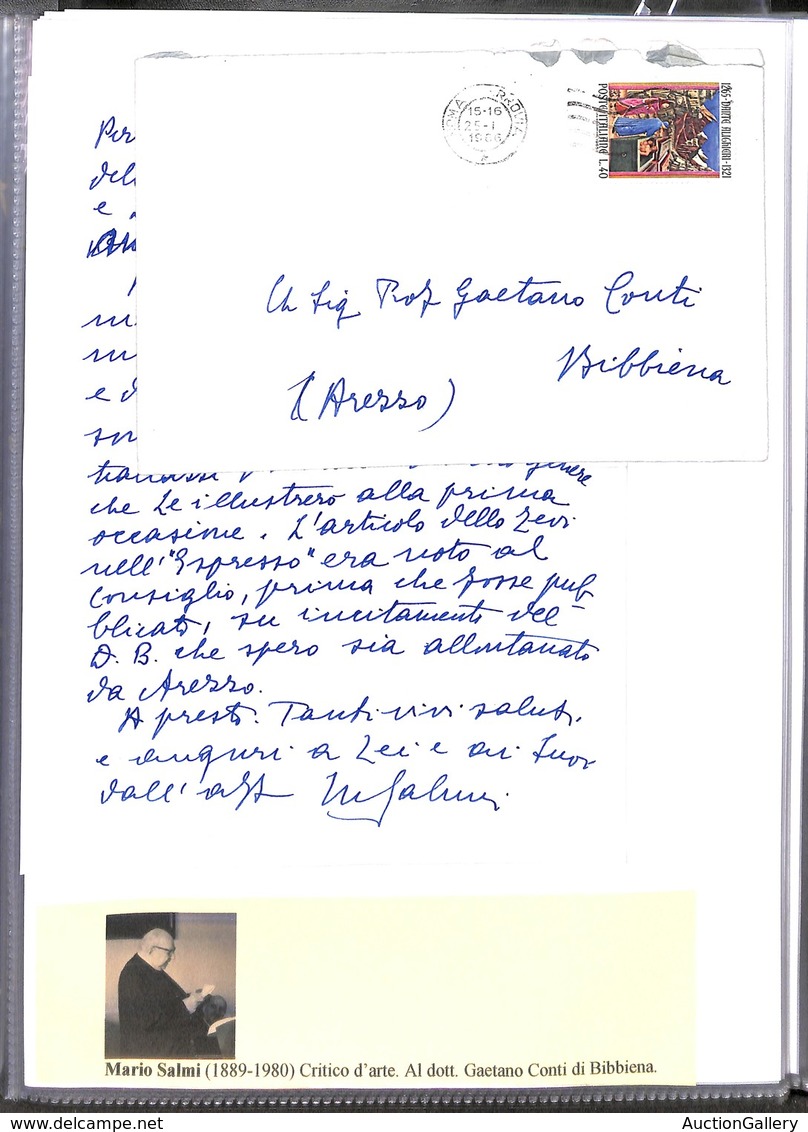 ROMA FERROVIA
15-16
25-1
1966
1265-DANTE ALIGHIERI-1321
POSTE ITALIANE L.40
Sig Prof Gaetano Conti
Bibbiena
(Arezzo)
Per
del
e
e d
che Le illustrerò alla prima
occasione. L'articolo dello Zevi
nell'"Espresso" era noto al
Consiglio, prima che fosse pub-
blicato, su incitamento del
D. B. che spero sia allontanato
da Arezzo.
A presto. Tanti vivi saluti,
e auguri a Lei e ai Suoi
dall' aff MSalmi
Mario Salmi (1889-1980) Critico d'arte. Al dott. Gaetano Conti di Bibbiena.
AuctionGallery